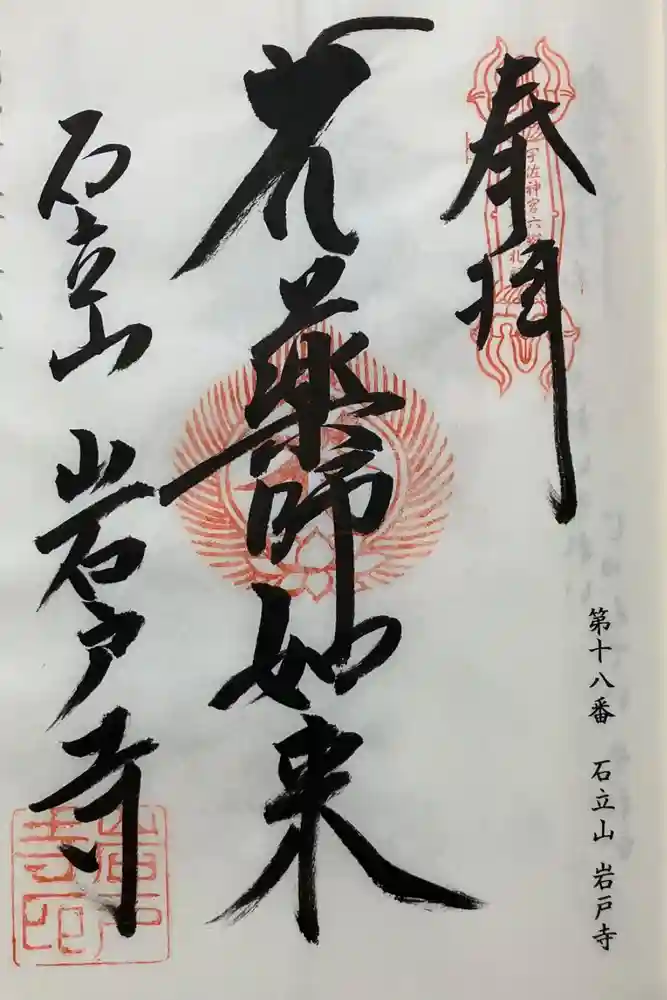 奉拝
宇佐神宮六
薬師如来
石立山 岩戸寺
岩戸寺印
第十八番 石立山 岩戸寺